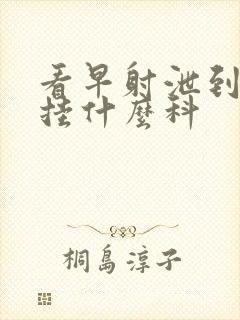 看早射泄到
挂什麼科
桐島淳子